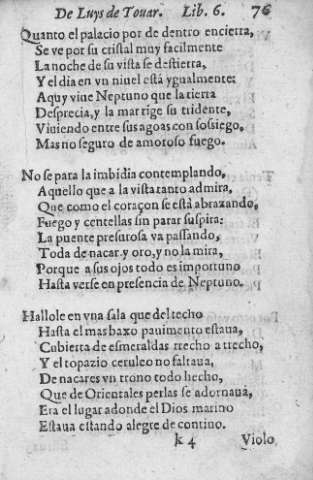 De Luys de Touar. Lib. 6. 76
Quanto el palacio por de dentro encierra,
Se ve por su cristal muy facilmente
La noche de su vista se destierra,
Y el dia en vn niuel està ygualmente:
Aquy viue Neptuno que la tierra
Desprecia, y la mar rige su tridente,
Viuiendo entre sus agoas con sossiego,
Mas no seguro de amoroso fuego.
No se para la imbidia contemplando,
Aquello que a la vista tanto admira,
Que como el coraçon se està abrazando,
Fuego y centellas sin parar suspira:
La puente presurosa va passando,
Toda de nacar, y oro, y no la mira,
Porque a sus ojos todo es importuno
Hasta verse en presencia de Neptuno.
Hallole en vna sala que del techo
Hasta el mas baxo pauimento estaua,
Cubierta de esmeraldas trecho a trecho,
Y el topazio ceruleo no faltaua,
De nacares vn trono todo hecho,
Que de Orientales perlas se adornaua,
Era el lugar adonde el Dios marino
Estaua estando alegre de contino.
k 4 Violo